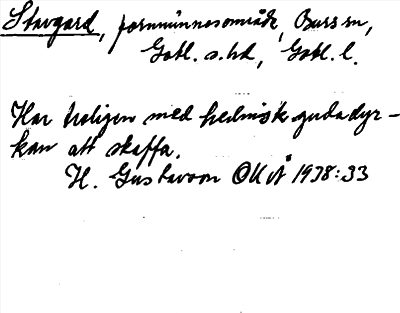 Stavgard, fornminnesområde, Burs sn,
Gotl. s. hd, Gotl. l.
Har troligen med hednisk gudadyr-
kan att skaffa.
H. Gustavson OKÅ 1938:33